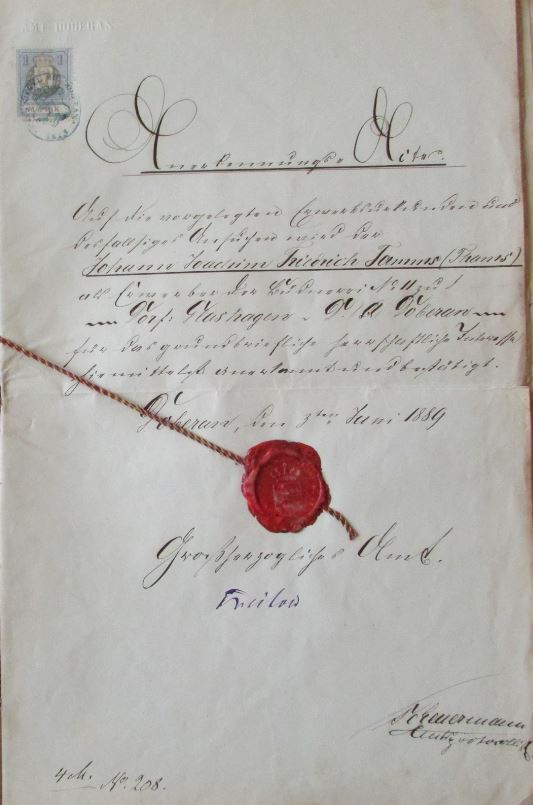 AMT DOBERAN
1 1
Anerkennungs-Acte.
Auf die vorgelegten Erwerbsurkunden und
desfallsiges Ansuchen wird der
Johann Joachim Friedrich Tamms (Thams)
als Erwerber der Büdnerei No 11 zu
Dorf: Hashagen D. A. Doberan
für das grundbriefliche herrschaftliche Interesse
hiemittelst anerkannt und bestätigt.
Doberan, den 3ten Juni 1889
Großherzogliches Amt.
4 M. No. 208.